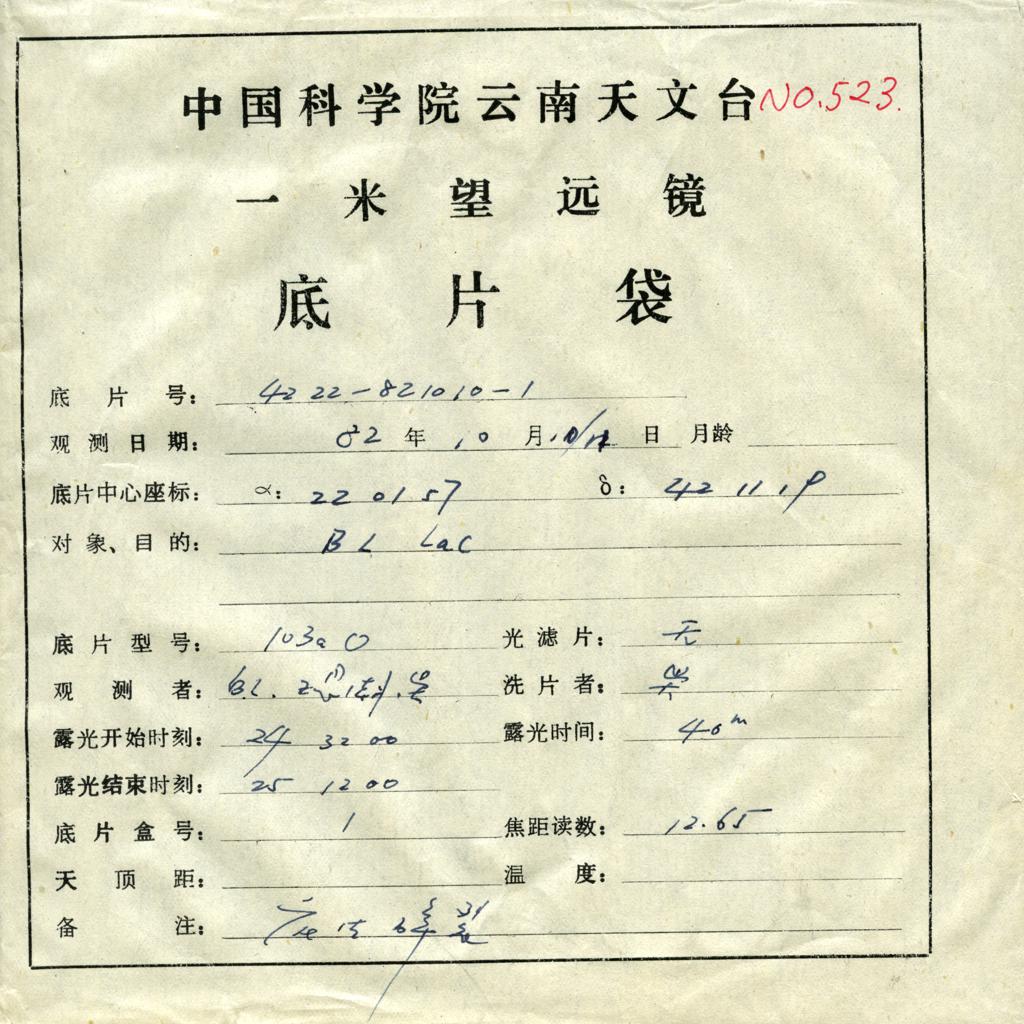 中国科学院云南天文台 NO.523.
一米望远镜
底片袋
底片号: 4222-821010-1
观测日期: 82年10月10/11日 月龄
底片中心座标: α: 220157 δ: 42 11.9
对象、目的: BL Lac
底片型号: 103a O 光滤片: 无
观测者: 洗片者: 吴
露光开始时刻: 24 32 00 露光时间: 40m
露光结束时刻: 25 12 00
底片盒号: 1 焦距读数: 12.65
天顶距: 温度:
备注: